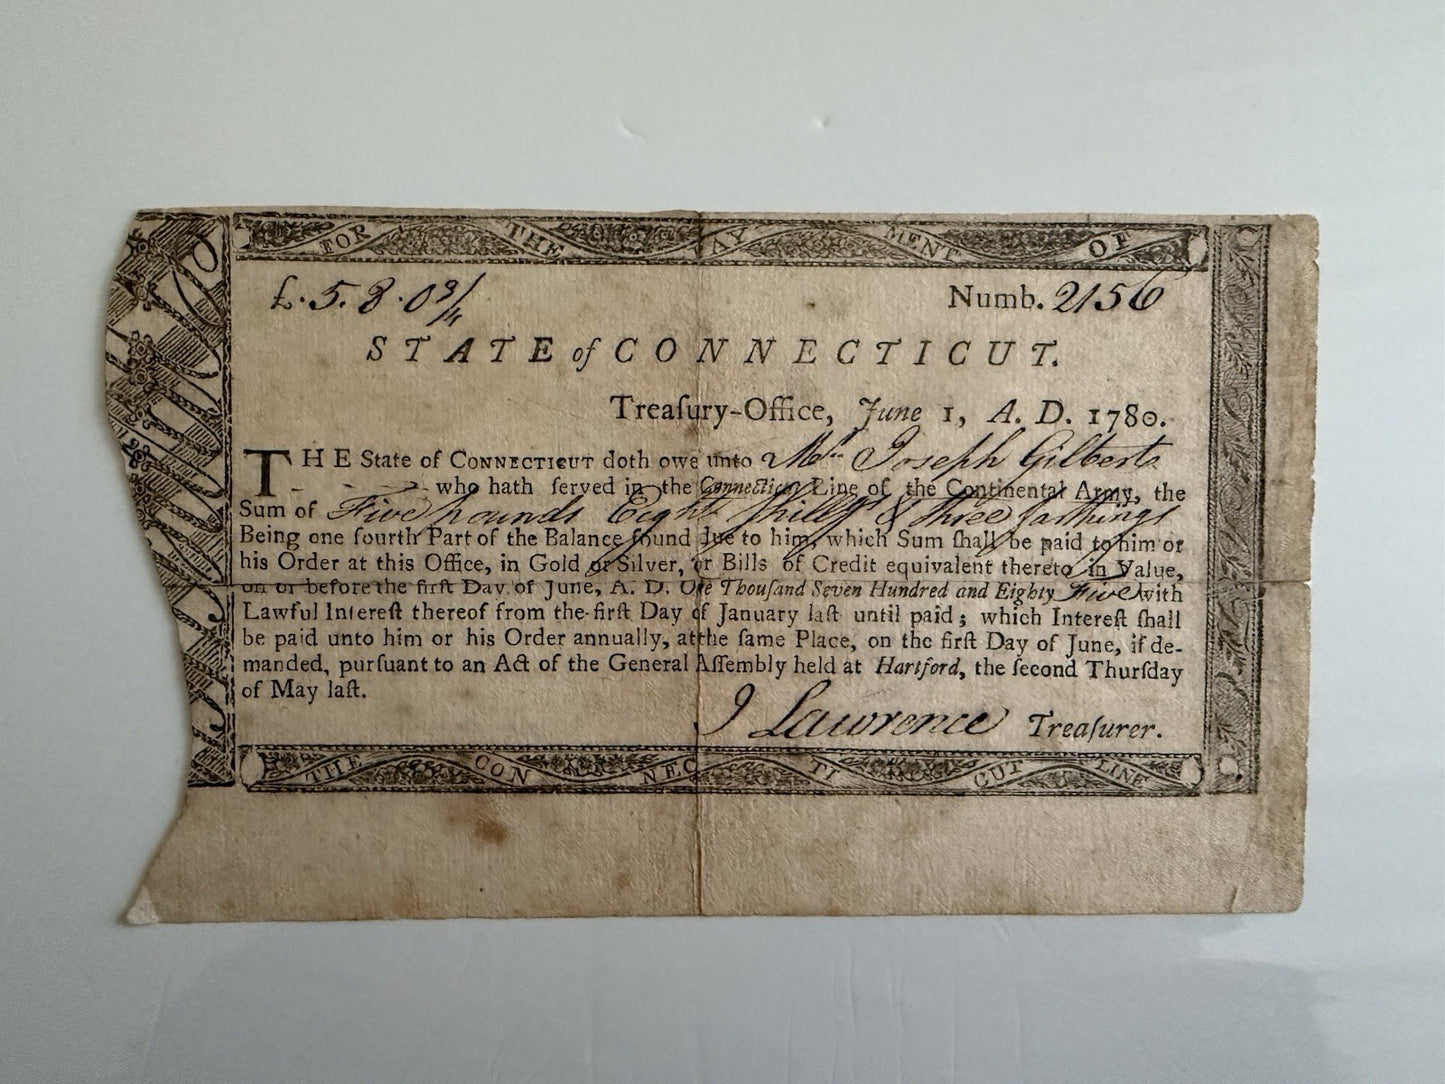 FOR THE PAY MENT OF
£.5.8.0 3/4 Numb. 2156
STATE of CONNECTICUT.
Treaſury-Office, June 1, A. D. 1780.
THE State of CONNECTICUT doth owe unto Mr. Joseph Gilberts
who hath ſerved in the Connecticut Line of the Continental Army, the
Sum of Five pounds Eight Shillgs & three farthings
Being one fourth Part of the Balance found due to him, which Sum ſhall be paid to him or
his Order at this Office, in Gold or Silver, or Bills of Credit equivalent thereto in Value,
on or before the firſt Day of June, A. D. One Thouſand Seven Hundred and Eighty Five with
Lawful Intereſt thereof from the firſt Day of January laſt until paid; which Intereſt ſhall
be paid unto him or his Order annually, at the ſame Place, on the firſt Day of June, if de-
manded, purſuant to an Act of the General Aſſembly held at Hartford, the ſecond Thurſday
of May laſt.
J Lawrence Treaſurer.
THE CON NEC TI CUT LINE